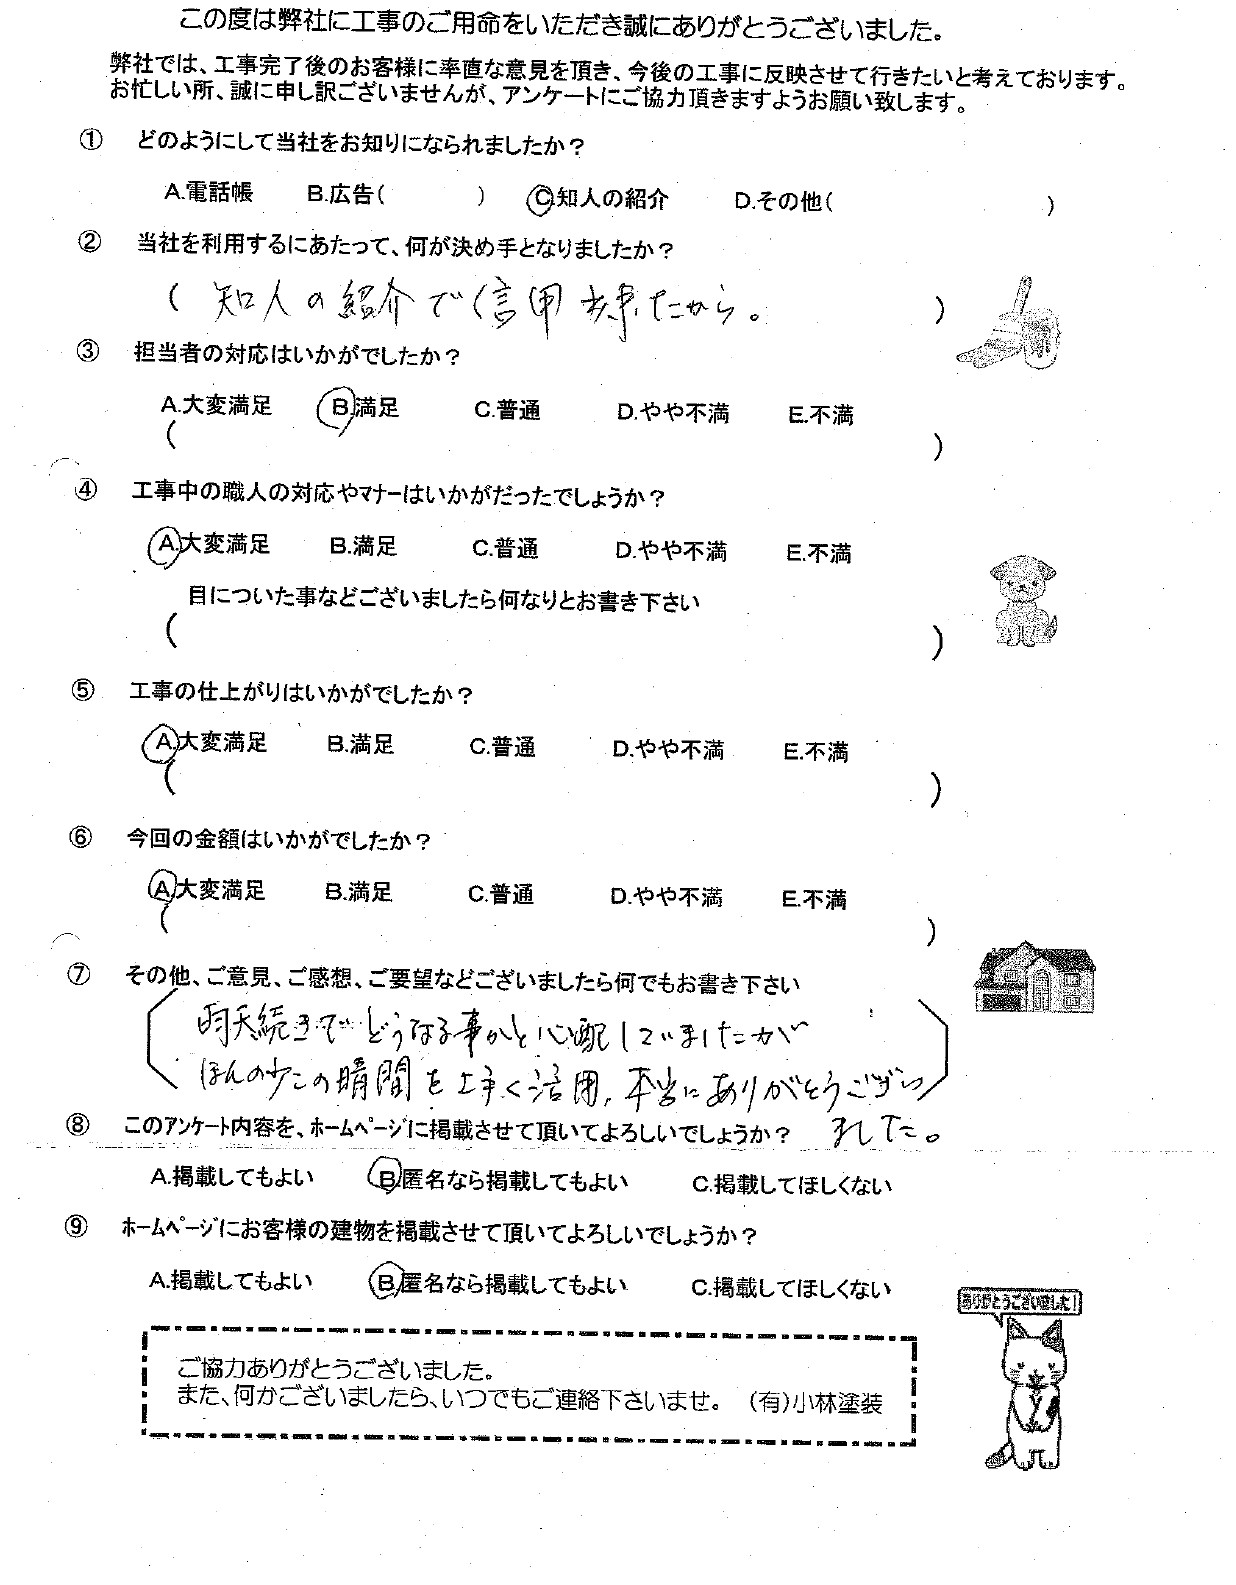 この度は弊社に工事のご用命をいただき誠にありがとうございました。
弊社では、工事完了後のお客様に率直な意見を頂き、今後の工事に反映させて行きたいと考えております。
お忙しい所、誠に申し訳ございませんが、アンケートにご協力頂きますようお願い致します。
① どのようにして当社をお知りになられましたか?
A.電話帳 B.広告( ) C.知人の紹介 D.その他( )
② 当社を利用するにあたって、何が決め手となりましたか?
( 知人の紹介で信用出来たから。 )
③ 担当者の対応はいかがでしたか?
A.大変満足 B.満足 C.普通 D.やや不満 E.不満
( )
④ 工事中の職人の対応やマナーはいかがだったでしょうか?
A.大変満足 B.満足 C.普通 D.やや不満 E.不満
目についた事などございましたら何なりとお書き下さい
( )
⑤ 工事の仕上がりはいかがでしたか?
A.大変満足 B.満足 C.普通 D.やや不満 E.不満
( )
⑥ 今回の金額はいかがでしたか?
A.大変満足 B.満足 C.普通 D.やや不満 E.不満
( )
⑦ その他、ご意見、ご感想、ご要望などございましたら何でもお書き下さい
雨天続きでどうなる事かと心配していましたが
ほんの少この晴間を上手く活用、本当にありがとうござい
ました。
⑧ このアンケート内容を、ホームページに掲載させて頂いてよろしいでしょうか?
A.掲載してもよい B.匿名なら掲載してもよい C.掲載してほしくない
⑨ ホームページにお客様の建物を掲載させて頂いてよろしいでしょうか?
A.掲載してもよい B.匿名なら掲載してもよい C.掲載してほしくない
ありがとうございました!
ご協力ありがとうございました。
また、何かございましたら、いつでもご連絡下さいませ。 (有)小林塗装